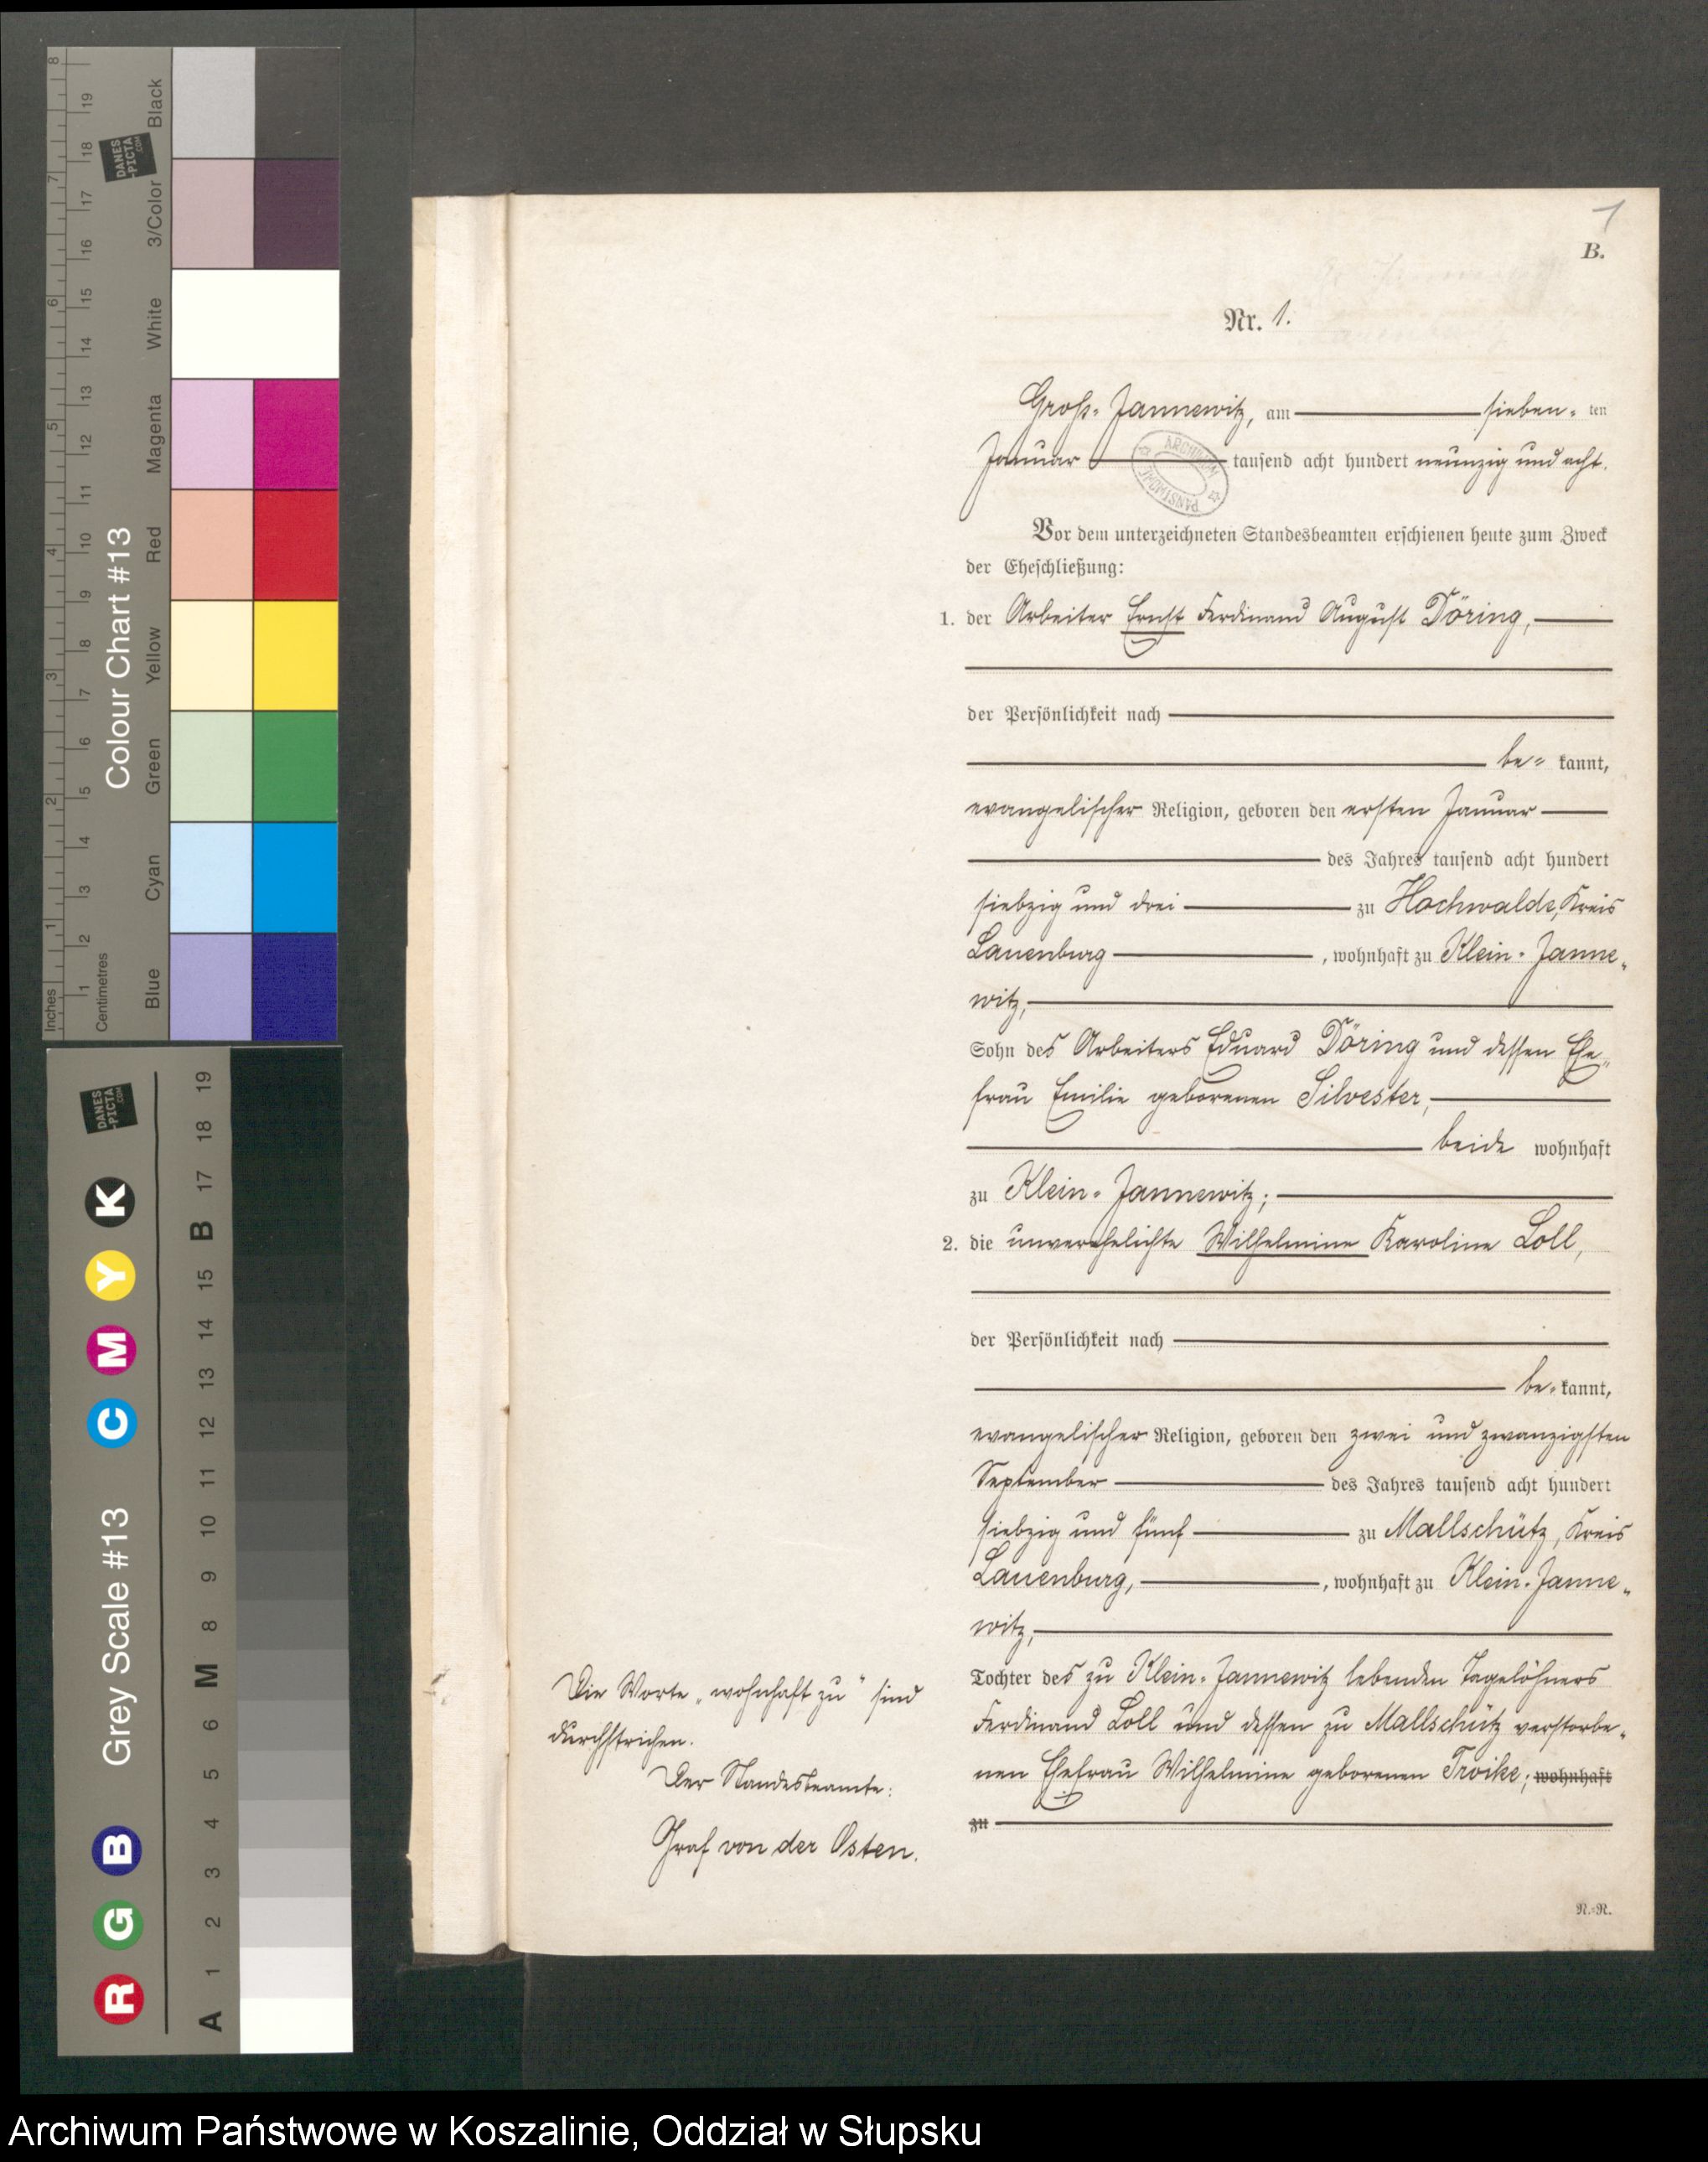 1
B.
Nr. 1.
Groß-Jannewitz, am sieben-ten
Januar tausend acht hundert neunzig und acht.
ARCHIWUM PAŃSTWOWE
Vor dem unterzeichneten Standesbeamten erschienen heute zum Zweck
der Eheschließung:
1. der Arbeiter Ernst Ferdinand August Döring,
der Persönlichkeit nach
be- kannt,
evangelischer Religion, geboren den ersten Januar
des Jahres tausend acht hundert
siebzig und drei zu Hochwalde, Kreis
Lauenburg, wohnhaft zu Klein-Janne-
witz,
Sohn des Arbeiters Eduard Döring und dessen Ehe-
frau Emilie geborenen Silvester,
beide wohnhaft
zu Klein-Jannewitz;
2. die unverehelichte Wilhelmine Karoline Loll,
der Persönlichkeit nach
be- kannt,
evangelischer Religion, geboren den zwei und zwanzigsten
September des Jahres tausend acht hundert
siebzig und fünf zu Mallschütz, Kreis
Lauenburg, , wohnhaft zu Klein-Janne-
witz,
Tochter des zu Klein-Jannewitz lebenden Tagelöhners
Ferdinand Loll und dessen zu Mallschütz verstorbe-
nen Ehefrau Wilhelmine geborenen Troike; wohnhaft
zu
Die Worte „wohnhaft zu" sind
durchstrichen.
Der Standesbeamte:
Graf von der Osten.
R.-R.
Inches 1 2 3 4 5 6 7 8
Centimetres 1 2 3 4 5 6 7 8 9 10 11 12 13 14 15 16 17 18 19
Colour Chart #13
DANES-PICTA.COM
Blue Cyan Green Yellow Red Magenta White 3/Color Black
DANES-PICTA.COM
R G B Grey Scale #13 C M Y K
A 1 2 3 4 5 6 M 8 9 10 11 12 13 14 15 B 17 18 19
Archiwum Państwowe w Koszalinie, Oddział w Słupsku